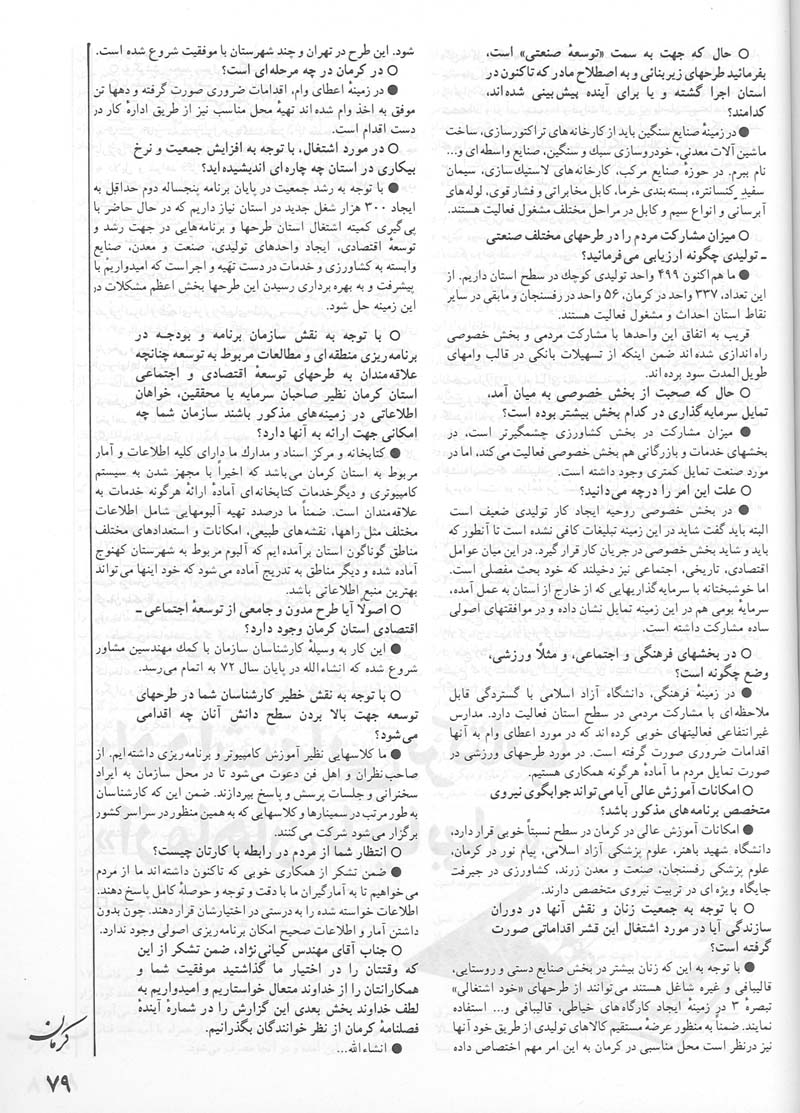 ○ حال که جهت به سمت «توسعهٔ صنعتی» است،
بفرمائید طرحهای زیربنائی و به اصطلاح مادر که تاکنون در
استان اجرا گشته و یا برای آینده پیش‌بینی شده‌اند،
کدامند؟
● در زمینهٔ صنایع سنگین باید از کارخانه‌های تراکتورسازی، ساخت
ماشین آلات معدنی، خودروسازی سبک و سنگین، صنایع واسطه‌ای و...
نام ببرم. در حوزهٔ صنایع مرکب، کارخانه‌های لاستیک‌سازی، سیمان
سفید، کنسانتره، بسته‌بندی خرما، کابل مخابراتی و فشار قوی، لوله‌های
آبرسانی و انواع سیم و کابل در مراحل مختلف مشغول فعالیت هستند.
○ میزان مشارکت مردم را در طرحهای مختلف صنعتی
ـ تولیدی چگونه ارزیابی می‌فرمائید؟
● ما هم‌اکنون ۴۹۹ واحد تولیدی کوچک در سطح استان داریم. از
این تعداد، ۳۳۷ واحد در کرمان، ۵۶ واحد در رفسنجان و مابقی در سایر
نقاط استان احداث و مشغول فعالیت هستند.
قریب به اتفاق این واحدها با مشارکت مردمی و بخش خصوصی
راه‌اندازی شده‌اند ضمن اینکه از تسهیلات بانکی در قالب وامهای
طویل‌المدت سود برده‌اند.
○ حال که صحبت از بخش خصوصی به میان آمد،
تمایل سرمایه‌گذاری در کدام بخش بیشتر بوده است؟
● میزان مشارکت در بخش کشاورزی چشمگیرتر است، در
بخشهای خدمات و بازرگانی هم بخش خصوصی فعالیت می‌کند، اما در
مورد صنعت تمایل کمتری وجود داشته است.
○ علت این امر را درچه می‌دانید؟
● در بخش خصوصی روحیه ایجاد کار تولیدی ضعیف است
البته باید گفت شاید در این زمینه تبلیغات کافی نشده است تا آنطور که
باید و شاید بخش خصوصی در جریان کار قرار گیرد. در این میان عوامل
اقتصادی، تاریخی، اجتماعی نیز دخیلند که خود بحث مفصلی است.
اما خوشبختانه با سرمایه گذاریهایی که از خارج از استان به عمل آمده،
سرمایهٔ بومی هم در این زمینه تمایل نشان داده و در موافقتهای اصولی
ساده مشارکت داشته است.
○ در بخشهای فرهنگی و اجتماعی، و مثلاً ورزشی،
وضع چگونه است؟
● در زمینهٔ فرهنگی، دانشگاه آزاد اسلامی با گستردگی قابل
ملاحظه‌ای با مشارکت مردمی در سطح استان فعالیت دارد. مدارس
غیرانتفاعی فعالیتهای خوبی کرده‌اند که در مورد اعطای وام به آنها
اقدامات ضروری صورت گرفته است. در مورد طرحهای ورزشی در
صورت تمایل مردم ما آمادهٔ هرگونه همکاری هستیم.
○ امکانات آموزش عالی آیا می‌تواند جوابگوی نیروی
متخصص برنامه‌های مذکور باشد؟
● امکانات آموزش عالی در کرمان در سطح نسبتاً خوبی قرار دارد،
دانشگاه شهید باهنر، علوم پزشکی آزاد اسلامی، پیام نور در کرمان،
علوم پزشکی رفسنجان، صنعت و معدن زرند، کشاورزی در جیرفت
جایگاه ویژه‌ای در تربیت نیروی متخصص دارند.
○ با توجه به جمعیت زنان و نقش آنها در دوران
سازندگی آیا در مورد اشتغال این قشر اقداماتی صورت
گرفته است؟
● با توجه به این که زنان بیشتر در بخش صنایع دستی و روستایی،
قالیبافی و غیره شاغل هستند می‌توانند از طرحهای «خود اشتغالی»
تبصرهٔ ۳ در زمینهٔ ایجاد کارگاه‌های خیاطی، قالیبافی و... استفاده
نمایند. ضمناً به منظور عرضهٔ مستقیم کالاهای تولیدی از طریق خود آنها
نیز درنظر است محل مناسبی در کرمان به این امر مهم اختصاص داده
شود. این طرح در تهران و چند شهرستان با موفقیت شروع شده است.
○ در کرمان در چه مرحله‌ای است؟
● در زمینهٔ اعطای وام، اقدامات ضروری صورت گرفته و دهها تن
موفق به اخذ وام شده‌اند تهیهٔ محل مناسب نیز از طریق ادارهٔ کار در
دست اقدام است.
○ در مورد اشتغال، با توجه به افزایش جمعیت و نرخ
بیکاری در استان چه چاره‌ای اندیشیده‌اید؟
● با توجه به رشد جمعیت در پایان برنامه پنجساله دوم حداقل به
ایجاد ۳۰۰ هزار شغل جدید در استان نیاز داریم که در حال حاضر با
پی‌گیری کمیته اشتغال استان طرحها و برنامه‌هایی در جهت رشد و
توسعهٔ اقتصادی، ایجاد واحدهای تولیدی، صنعت و معدن، صنایع
وابسته به کشاورزی و خدمات در دست تهیه و اجراست که امیدواریم با
پیشرفت و به بهره برداری رسیدن این طرحها بخش اعظم مشکلات در
این زمینه حل شود.
○ با توجه به نقش سازمان برنامه و بودجه در
برنامه‌ریزی منطقه‌ای و مطالعات مربوط به توسعه چنانچه
علاقه‌مندان به طرحهای توسعهٔ اقتصادی و اجتماعی
استان کرمان نظیر صاحبان سرمایه یا محققین، خواهان
اطلاعاتی در زمینه‌های مذکور باشند سازمان شما چه
امکانی جهت ارائه به آنها دارد؟
● کتابخانه و مرکز اسناد و مدارک ما دارای کلیه اطلاعات و آمار
مربوط به استان کرمان می‌باشد که اخیراً با مجهز شدن به سیستم
کامپیوتری و دیگر خدمات کتابخانه‌ای آمادهٔ ارائه هرگونه خدمات به
علاقه‌مندان است. ضمناً ما درصدد تهیه آلبومهایی شامل اطلاعات
مختلف مثل راهها، نقشه‌های طبیعی، امکانات و استعدادهای مختلف
مناطق گوناگون استان برآمده ایم که آلبوم مربوط به شهرستان کهنوج
آماده شده و دیگر مناطق به تدریج آماده می‌شود که خود اینها می‌تواند
بهترین منبع اطلاعاتی باشد.
○ اصولاً آیا طرح مدون و جامعی از توسعهٔ اجتماعی ـ
اقتصادی استان کرمان وجود دارد؟
● این کار به وسیلهٔ کارشناسان سازمان با کمک مهندسین مشاور
شروع شده که انشاءالله در پایان سال ۷۲ به اتمام می‌رسد.
○ با توجه به نقش خطیر کارشناسان شما در طرحهای
توسعه جهت بالا بردن سطح دانش آنان چه اقدامی
می‌شود؟
● ما کلاسهایی نظیر آموزش کامپیوتر و برنامه‌ریزی داشته‌ایم. از
صاحب‌نظران و اهل فن دعوت می‌شود تا در محل سازمان به ایراد
سخنرانی و جلسات پرسش و پاسخ بپردازند. ضمن این که کارشناسان
به طور مرتب در سمینارها و کلاسهایی که به همین منظور در سراسر کشور
برگزار می‌شود شرکت می‌کنند.
○ انتظار شما از مردم در رابطه با کارتان چیست؟
● ضمن تشکر از همکاری خوبی که تاکنون داشته‌اند ما از مردم
می‌خواهیم تا به آمارگیران ما با دقت و توجه و حوصلهٔ کامل پاسخ دهند.
اطلاعات خواسته شده را به درستی در اختیارشان قرار دهند. چون بدون
داشتن آمار و اطلاعات صحیح امکان برنامه‌ریزی اصولی وجود ندارد.
○ جناب آقای مهندس کیانی‌نژاد، ضمن تشکر از این
که وقتتان را در اختیار ما گذاشتید موفقیت شما و
همکارانتان را از خداوند متعال خواستاریم و امیدواریم به
لطف خداوند بخش بعدی این گزارش را در شمارهٔ آیندهٔ
فصلنامهٔ کرمان از نظر خوانندگان بگذرانیم.
● انشاءالله...
کرمان
۷۹